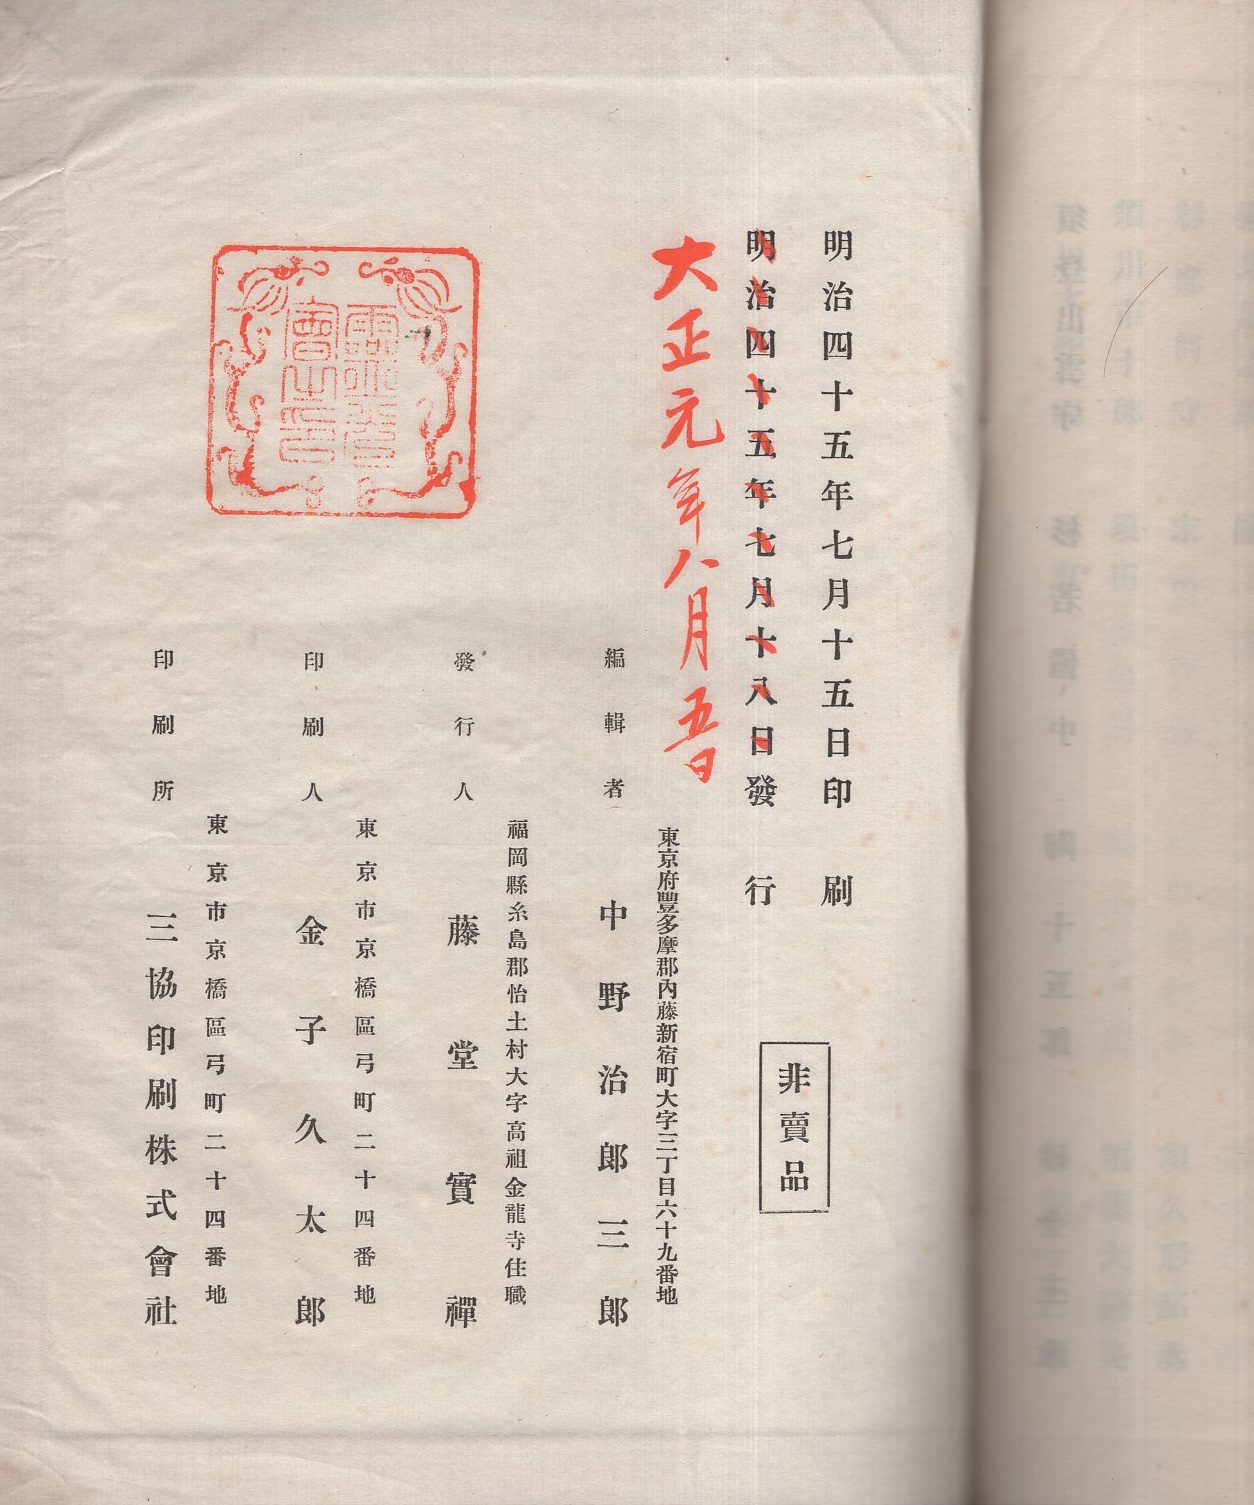 明治四十五年七月十五日印刷
明治四十五年七月十八日發行
大正元年八月五日
非賣品
東京府豐多摩郡內藤新宿町大字三丁目六十九番地
編輯者 中野治郞三郞
福岡縣糸島郡怡土村大字高祖金龍寺住職
發行人 藤堂實禪
東京市京橋區弓町二十四番地
印刷人 金子久太郞
東京市京橋區弓町二十四番地
印刷所 三協印刷株式會社